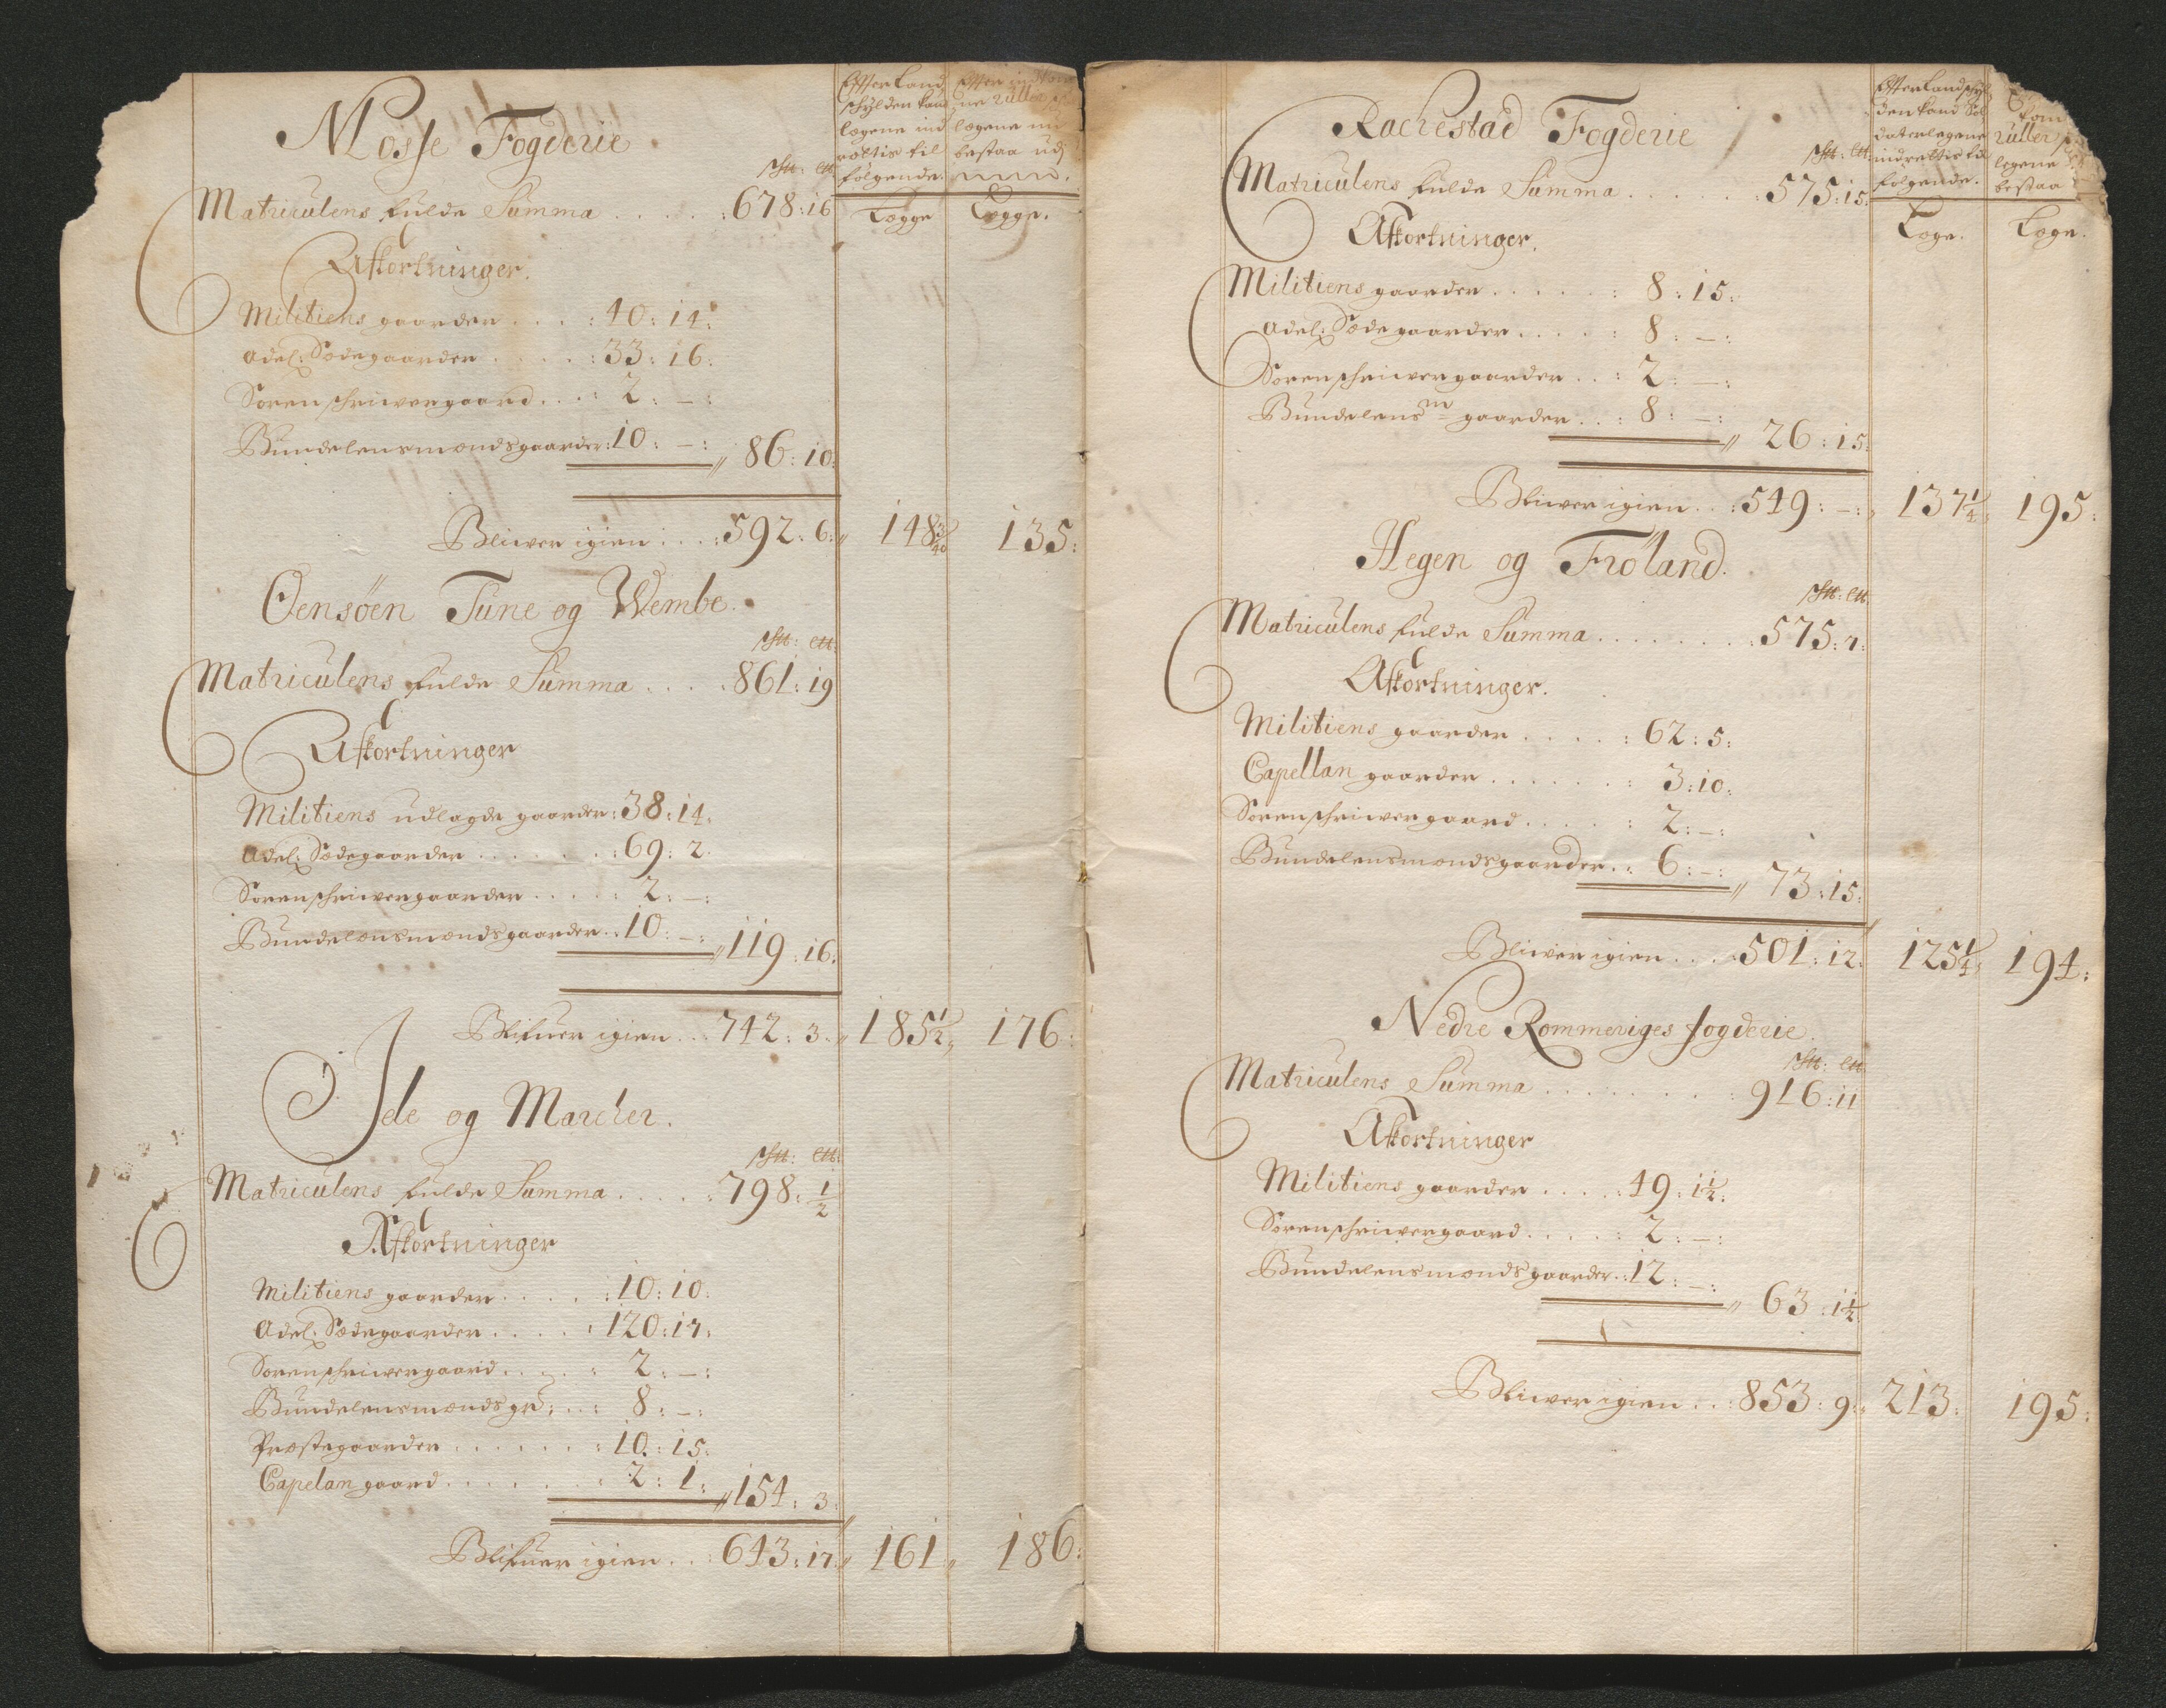 Mosse Fogderie
Efter Land
schylden kand
lægene ind
rættis til
følgende.
Efter
ne ruller
lægene nu
bestaa udj
Lægge
Lægge.
s℔: l℔
Matriculens fulde Summa . . . . . : 678 : 16
Afkortninger.
Militiens gaarder . . . . : 40 : 14 :
Adel: Sædegaarder . . . . : 33 : 16 :
Sorenschriwergaard . . . : 2 : – :
Bundelensmandsgaarder : 10 : – : 86 : 10 :
Bliwer igien . . . : 592 : 6 : 148 3/40 135 :
Oensöen Tune og Wembe.
s℔: l℔:
Matriculens fulde Summa . . . . : 861 : 19
Afkortninger
Militiens udlagde gaarder : 38 : 14 :
Adel: Sædegaarder . . . . . . : 69 : 2 .
Sorenschriwergaarder . . . . : 2 : – :
Bundelensmandsgaarder . : 10 : – : 119 : 16 :
Blifuer igien . . : 742 : 3 . 185 1/2 176 :
Ide og Marcher.
s℔: l℔:
Matriculens fulde Summa . . . . . : 798 : 1/2
Afkortninger
Militiens gaarder . . . . . : 10 : 10 :
Adel: Sædegaarder . . . . : 120 : 17 :
Sorenschriwergaard . . . . : 2 : – :
Bundelensmands gr: . . : 8 : – :
Præstegaarder . . . . . . : 10 : 15 :
Capelan gaard . . . . . . : 2 : 1 : 154 : 3 :
Blifuer igien . . : 643 : 17 : 161 186 :
Rachestad Fogderie
Efter Landschyl
den kand Sol
daterlegene
indrettis til
følgende.
ruller
legene
bestaa
Læge.
Læge.
s℔: l℔:
Matriculens fulde Summa . . . . . : 575 : 15 :
Afkortninger.
Militiens gaarder . . . . . . : 8 : 15 :
Adel: Sædegaarder . . . . . : 8 : – :
Sorenschriwergaarder . . : 2 : – :
Bundelens m gaarder . . : 8 : – : 26 : 15 :
Bliwer igien . . : 549 : – : 137 1/4 195 :
Hegen og Fröland.
s℔: l℔.
Matriculens fulde Summa . . . . . . . : 575 : 7 :
Afkortninger.
Militiens gaarder . . . . . : 62 : 5 :
Capellan gaarder . . . . . . : 3 : 10 :
Sorenschriwergaard . . . . . : 2 : – :
Bundelensmandsgaarder . : 6 : – : 73 : 15 :
Bliwer igien . . . : 501 : 12 : 125 1/4 194 :
Nedre Rommeriges fogderie.
s℔: l℔
Matriculens Summa . . . . . . . . : 916 : 11
Afkortninger
Militiens gaarder . . . . : 49 : 1 1/2 :
Sorenschriwergaard . . . . . : 2 : – :
Bundelensmandsgaarder . : 12 : – :
63 : 1 1/2
Bliwer igien . . : 853 : 9 : 213 : 195 :